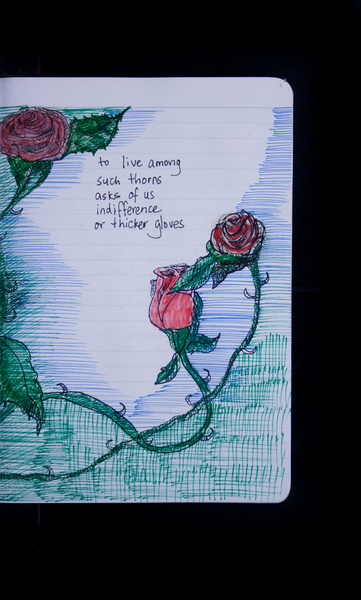 to live among
such thorns
asks of us
indifference
or thicker gloves